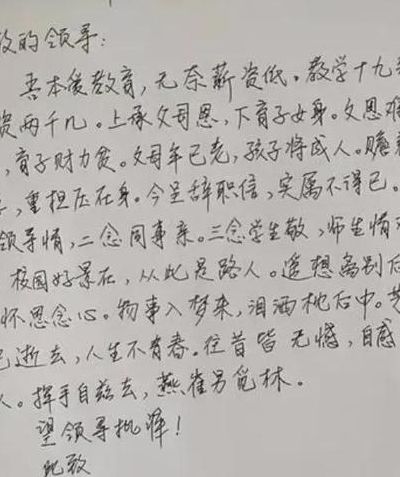 的领导：
吾本爱教育，无奈薪资低。教学十九
资两千几。上承父母恩，下育子女身。父恩难
，育子财力贫。父母年已老，孩子将成人。赡
，重担压在身。今呈辞职信，实属不得已。
领导情，二念同事亲。三念学生敬，师生情
校园好景在，从此是路人。遥想离别后
怀思念心。物事入梦来，泪洒枕后中。
已逝去，人生不有春。往昔皆无憾，自感
人。挥手自兹去，燕雀另觅林。
望领导批准！
此致